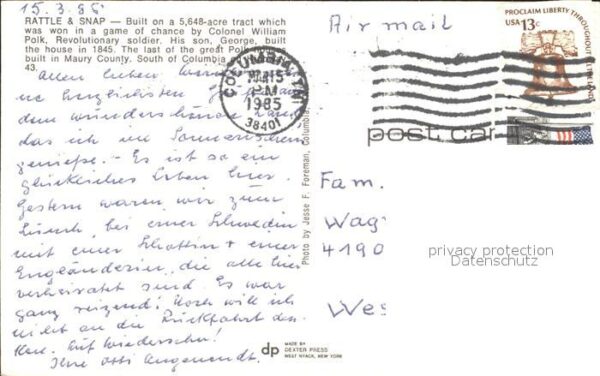 15.3.85
RATTLE & SNAP — Built on a 5,648-acre tract which
was won in a game of chance by Colonel William
Polk, Revolutionary soldier. His son, George, built
the house in 1845. The last of the great Polk
built in Maury County. South of Columbia
43.
Allen lieben
dem
das ich im
genieße. - Es ist so ein
glückliches Leben hier.
Gestern waren wir zum
Lunch bei einer Schwedin
mit einer Schottin + einer
Engländerin, die alle hier
verheiratet sind. Es war
ganz reizend! Noch will ich
nicht an die Rückfahrt den-
ken. Auf Wiedersehn!
Ihre
Photo by Jesse F. Foreman, Columbia
COLUMBIA, TN
MAR 15
PM
1985
38401
Air mail
PROCLAIM LIBERTY THROUGHOUT
USA 13c
post card
Fam.
Wag
4190
Wes
privacy protection
Datenschutz
dp
MADE BY
DEXTER PRESS
WEST NYACK, NEW YORK